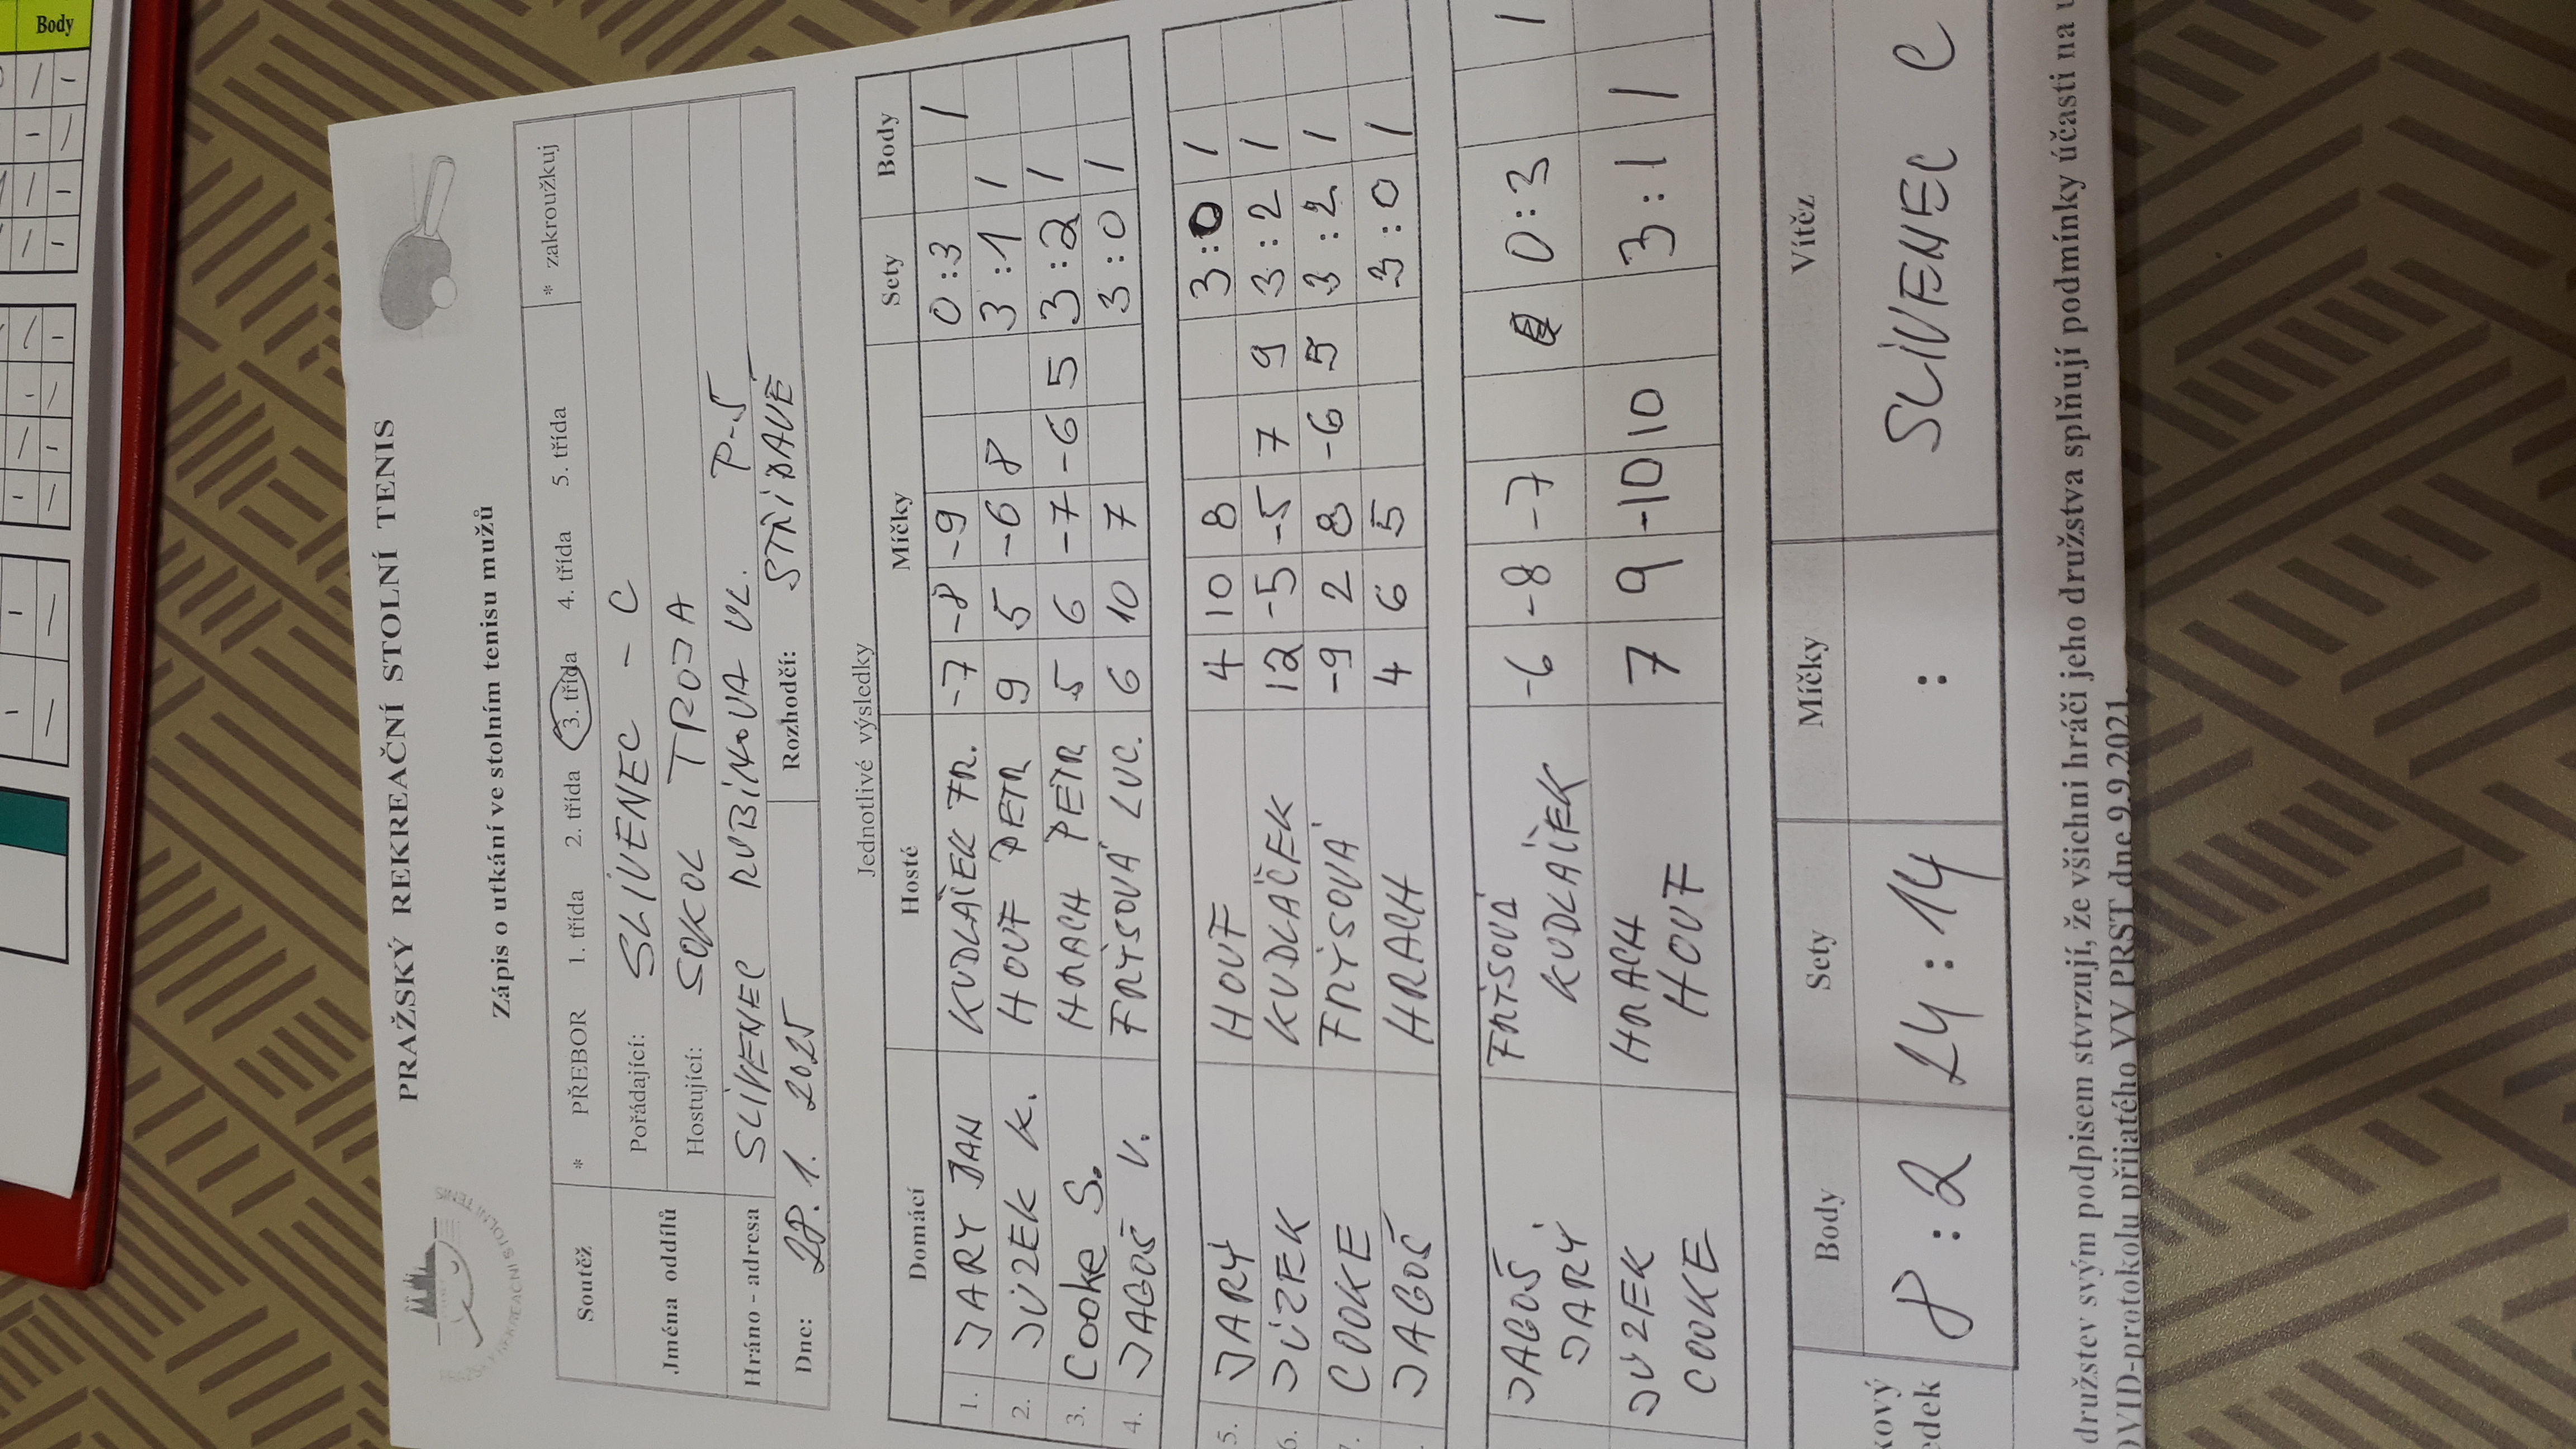 Body
PRAŽSKÝ REKREAČNÍ STOLNÍ TENIS
Zápis o utkání ve stolním tenisu mužů
Soutěž * PŘEBOR 1. třída 2. třída 3. třída 4. třída 5. třída * zakroužkuj
Jména oddílů Pořádající: SLIVENEC - C
Hostující: SOKOL TROJA
Hráno - adresa SLIVENEC RUBÍNOVA UL. P-5
Dne: 28. 1. 2025 Rozhodčí: STŘÍDAVĚ
Jednotlivé výsledky
Domácí Hosté Míčky Sety Body
1. JARY JAN KUDLAČEK FR. -7 -8 -9 0:3 1
2. JUZEK K. HOUF PETR 9 5 -6 8 3:1 1
3. Cooke S. HRACH PETR 5 6 -7 -6 5 3:2 1
4. JAGOŠ V. FRYSOVÁ LUC. 6 10 7 3:0 1
5. JARY HOUF 4 10 8 3:0 1
6. JUZEK KUDLAČEK 12 -5 -5 7 9 3:2 1
COOKE FRYSOVÁ -9 2 8 -6 5 3:2 1
JAGOŠ HRACH 4 6 5 3:0 1
JAGOŠ JARY FRYSOVÁ KUDLAČEK -6 -8 -7 0:3 1
JUZEK COOKE HRACH HOUF 7 9 -10 10 3:1 1
Body Sety Míčky Vítěz
8:2 24:14 : SLIVENEC C
družstev svým podpisem stvrzují, že všichni hráči jeho družstva splňují podmínky účasti na
OVID-protokolu přijatého VV PRST dne 9.9.2021.